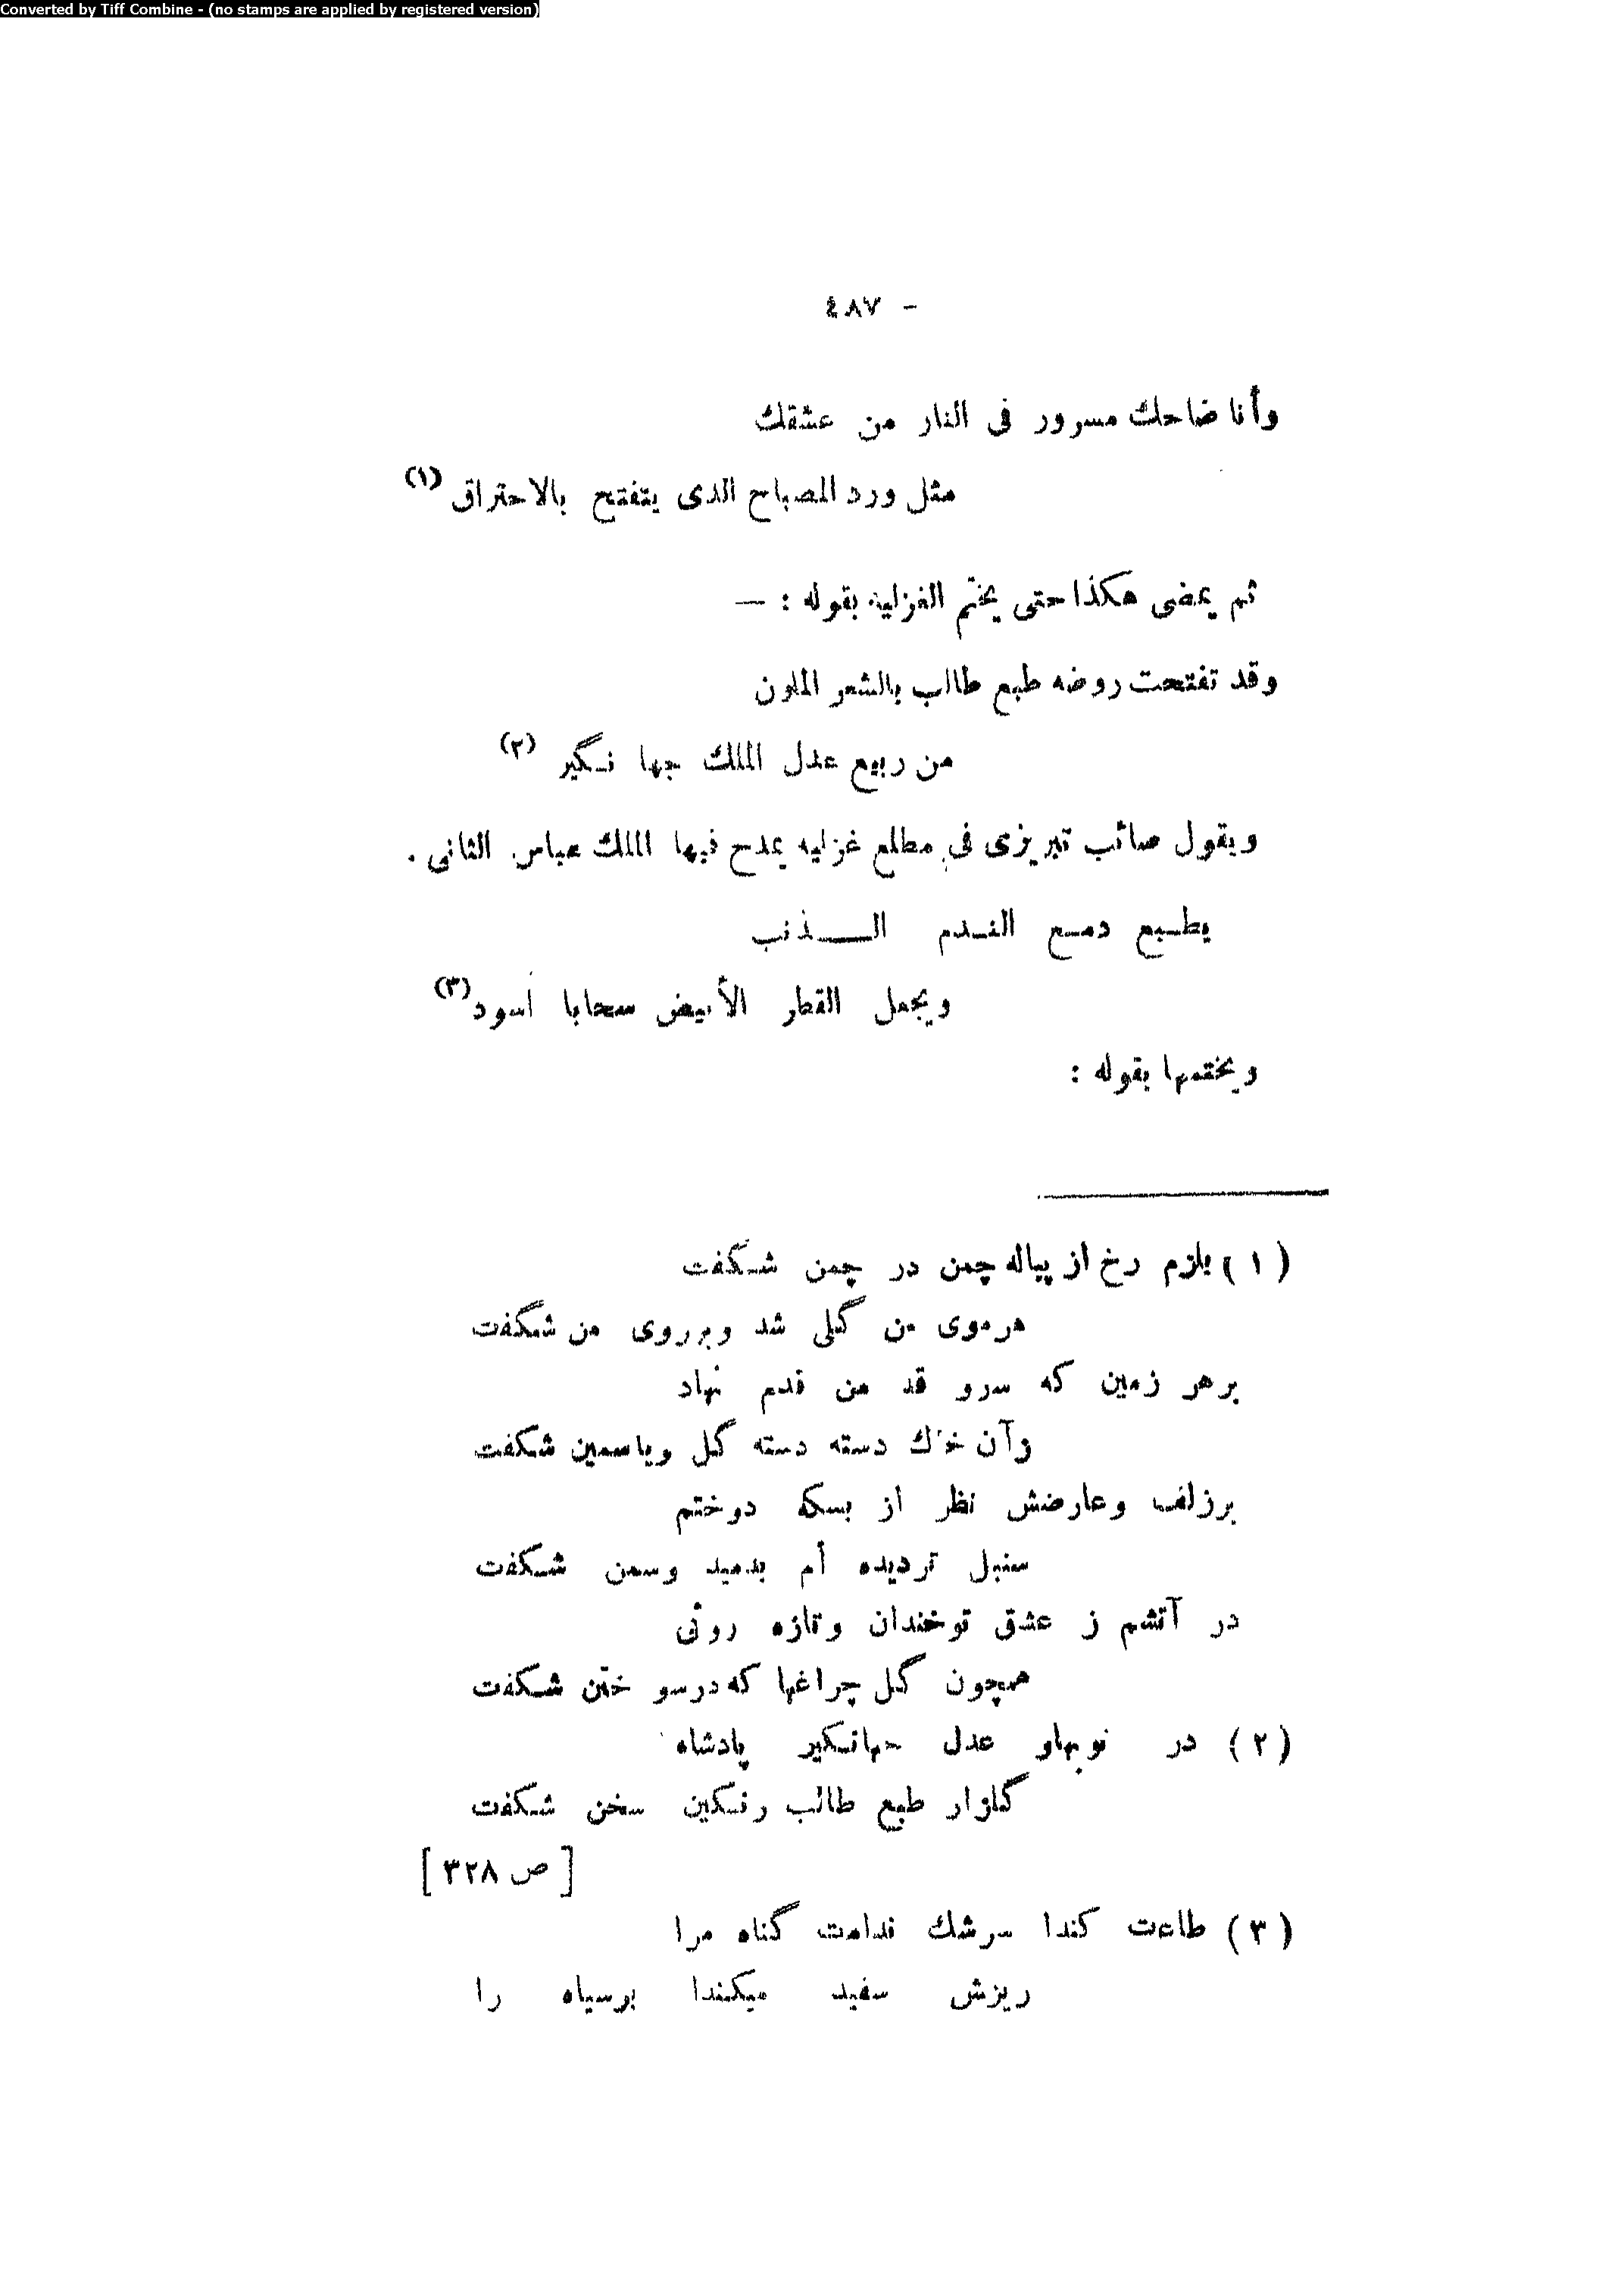 Converted by Tiff Combine - (no stamps are applied by registered version)
- ٤٨٧
وأنا ضاحك مسرور فى النار من عشقك
مثل ورد المصباح الذى يتفتح بالاحتراق (١)
ثم يمضى هكذا حتى يختم الغزلية بقوله : —
وقد تفتحت روضه طبع طالب بالشعر الملون
من ربيع عدل الملك جها نـگير (٢)
ويقول صائب تبريزى فى مطلع غزليه يمدح فيها الملك عباس الثانى .
يطـبع دمـع النـدم الـــذنب
ويجعل القطر الأبيض سحابا أسود (٣)
ويختمها بقوله :
(١) بلزم رخ از پياله چمن در چمن شـكفت
هرموى من گلى شد وبرروى من شگفت
برهر زمين كه سرو قد من قدم نهاد
زآن خاك دسته دسته گل وياسمين شكفت
برزلف وعارضش نظر از بسكه دوختم
سنبل ترديده أم بدميد وسمن شـكفت
در آتشم ز عشق توخندان وتازه روئى
همچون گل چراغها كه درسو ختن شـكفت
(٢) در نوبهاو عدل جهانـكير پادشاه
گلزار طبع طالب رنـكين سخن شـكفت
[ ص ٣٢٨ ]
(٣) طاعت كندا سرشك ندامت گناه مرا
ريزش سفيد ميكندا برسياه را